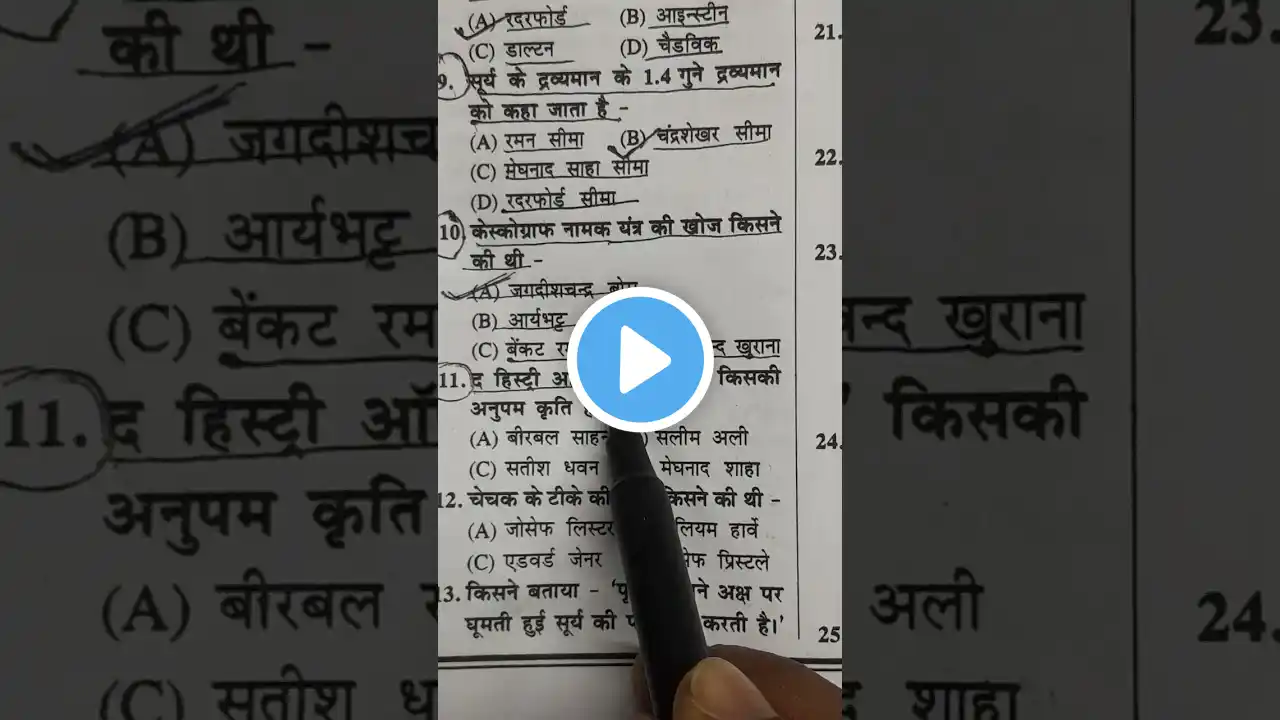 (A) रदरफोर्ड (B) आइन्स्टीन
(C) डाल्टन (D) चैडविक
9. सूर्य के द्रव्यमान के 1.4 गुने द्रव्यमान
को कहा जाता है -
(A) रमन सीमा (B) चंद्रशेखर सीमा
(C) मेघनाद साहा सीमा
(D) रदरफोर्ड सीमा
10. केस्कोग्राफ नामक यंत्र की खोज किसने
की थी -
(A) जगदीशचन्द्र
(B) आर्यभट्ट
(C) बेंकट खुराना
11. द हिस्ट्री किसकी
अनुपम कृति
(A) बीरबल सलीम अली
(C) सतीश धवन मेघनाद शाहा
12. चेचक के टीके की किसने की थी -
(A) जोसेफ लिस्टर हार्वे
(C) एडवर्ड जेनर प्रिस्टले
13. किसने बताया - अक्ष पर
घूमती हुई सूर्य की करती है।'
21.
22.
23.
24.
25
की थी -
(A) जगदीशच
(B) आर्यभट्ट
(C) बेंकट खुराना
11. द हिस्ट्री किसकी
अनुपम कृति
(A) बीरबल अली
(C) सतीश शाहा
23.
24.